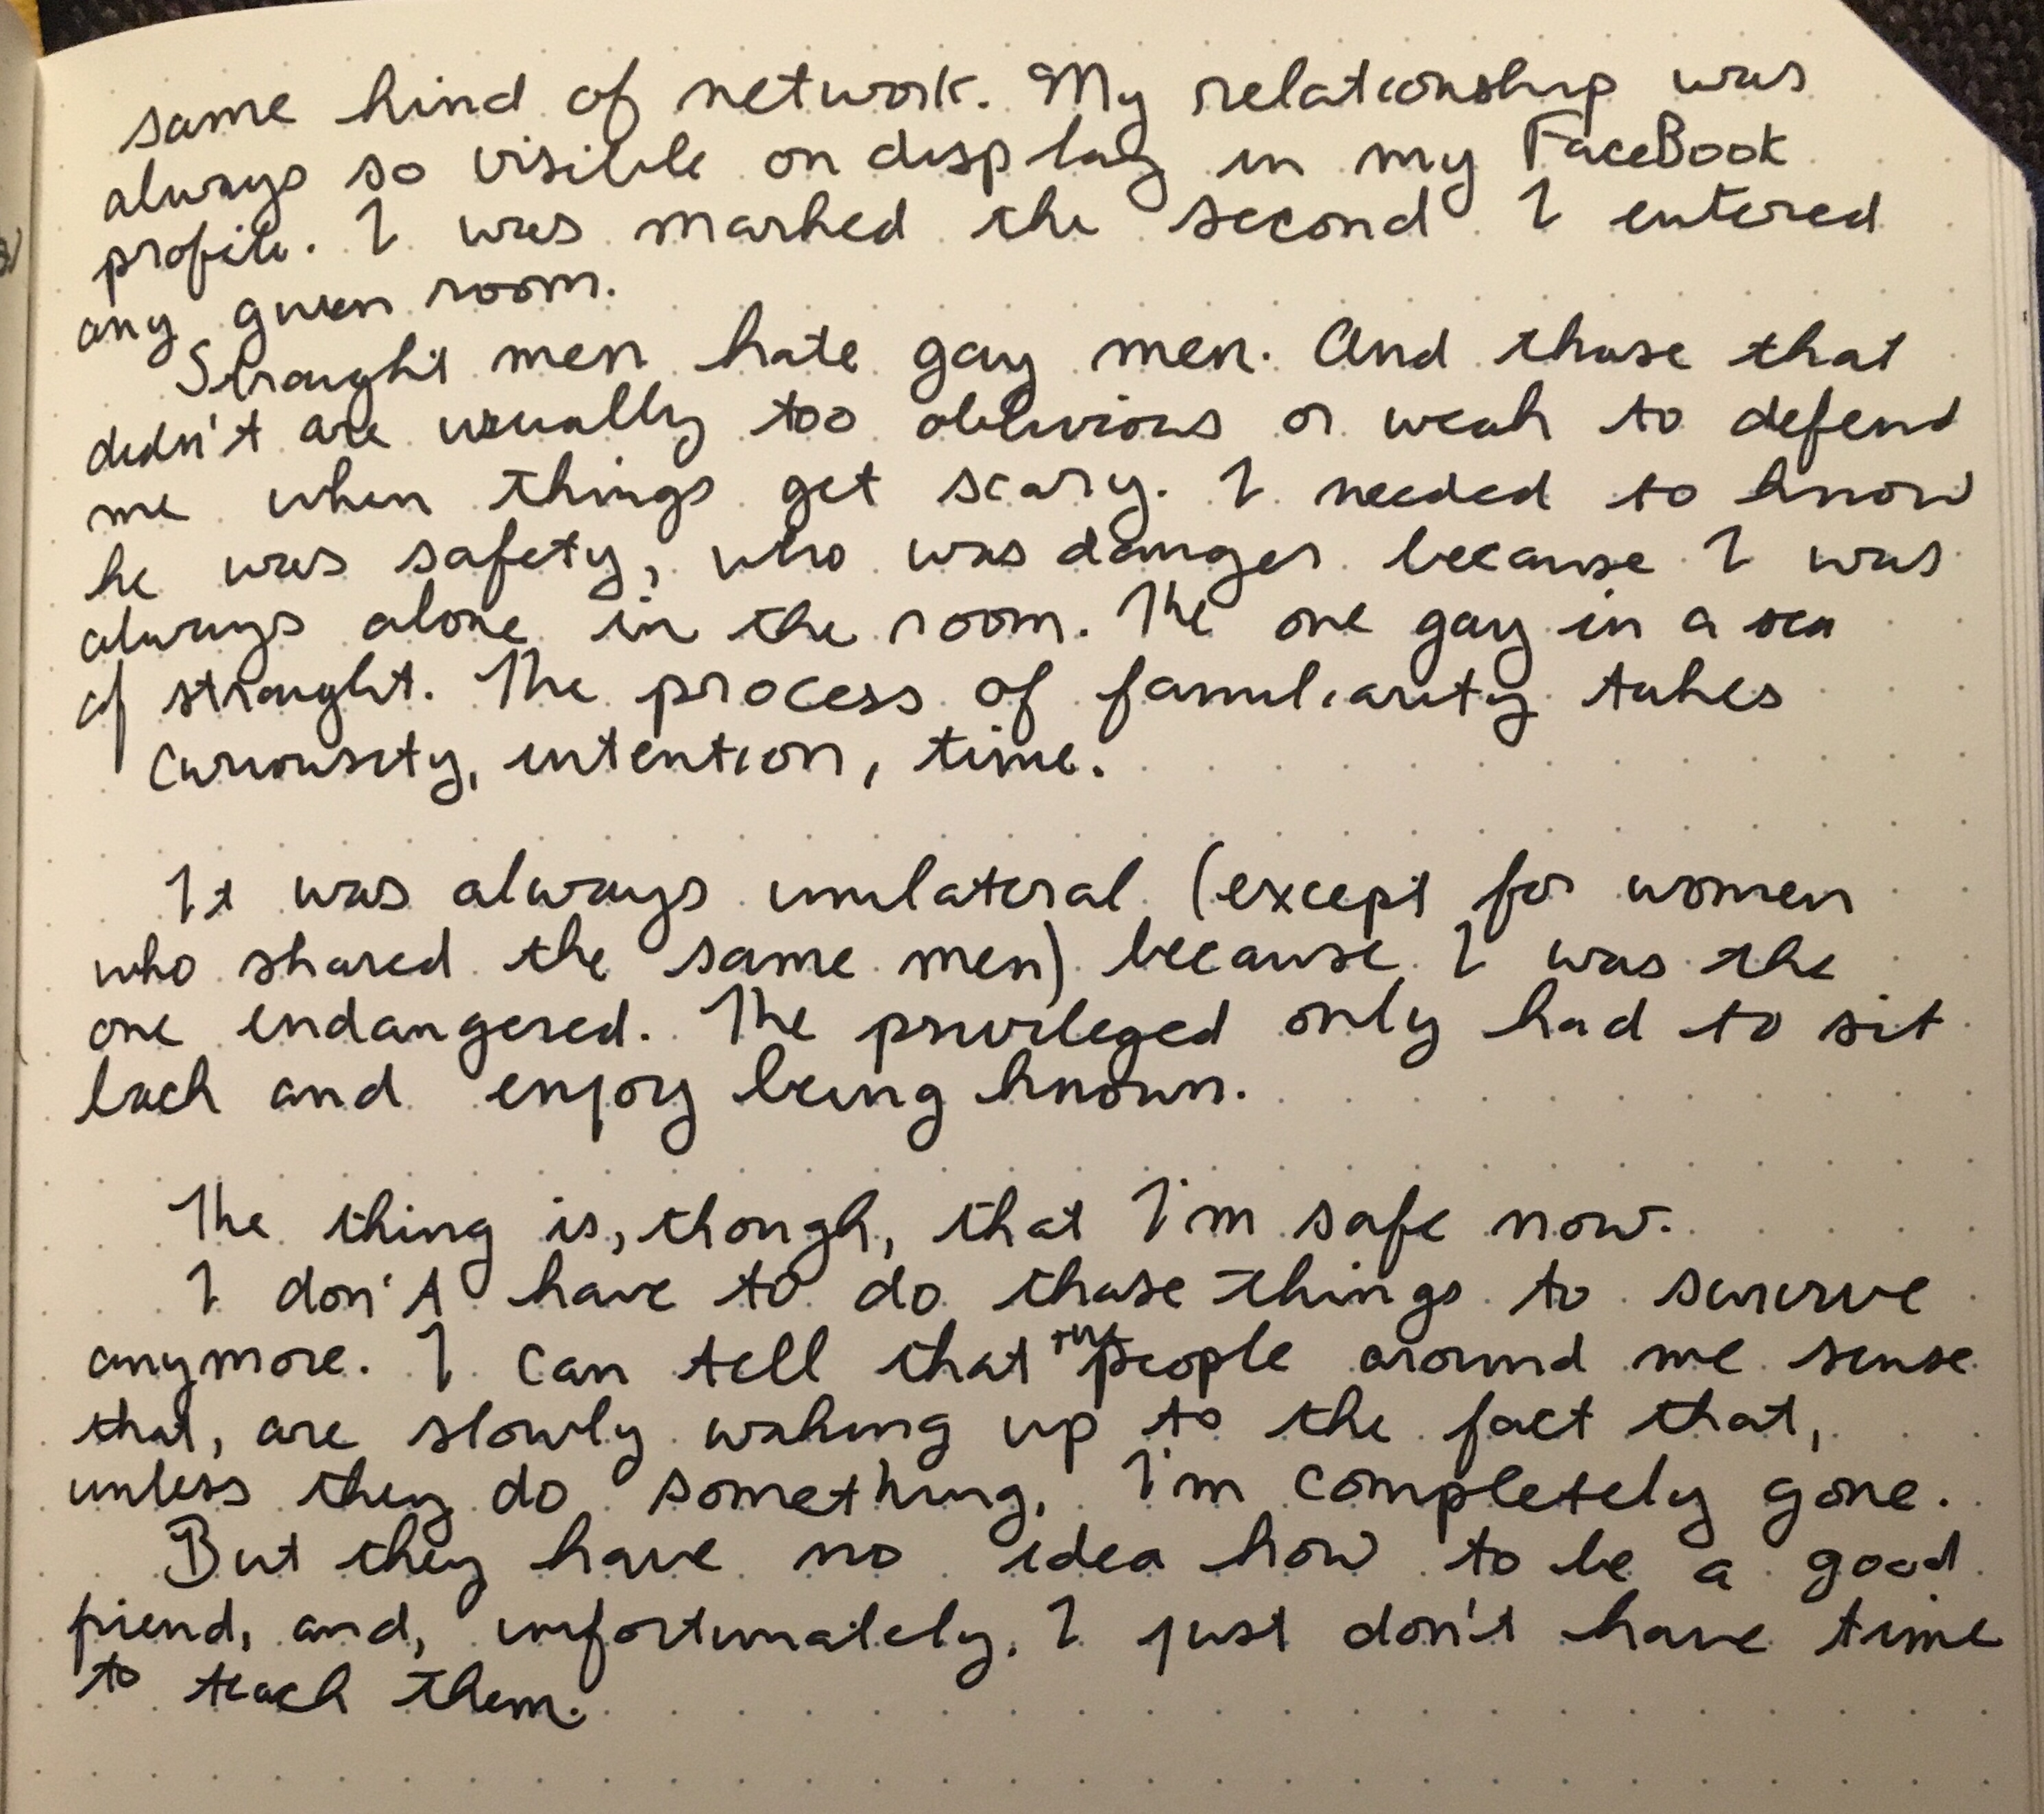 same kind of network. My relationship was
always so visible on display in my FaceBook
profile. I was marked the second I entered
any given room.
Straight men hate gay men. And those that
didn't are usually too oblivious or weak to defend
me when things get scary. I needed to know
he was safety, who was danger because I was
always alone in the room. The one gay in a sea
of straight. The process of familiarity takes
curiousity, intention, time.
It was always unilateral (except for women
who shared the same men) because I was the
one endangered. The privileged only had to sit
back and enjoy being known.
The thing is, though, that I'm safe now.
I don't have to do those things to survive
anymore. I can tell that the people around me sense
that, are slowly waking up to the fact that,
unless they do something, I'm completely gone.
But they have no idea how to be a good
friend, and, unfortunately, I just don't have time
to teach them.